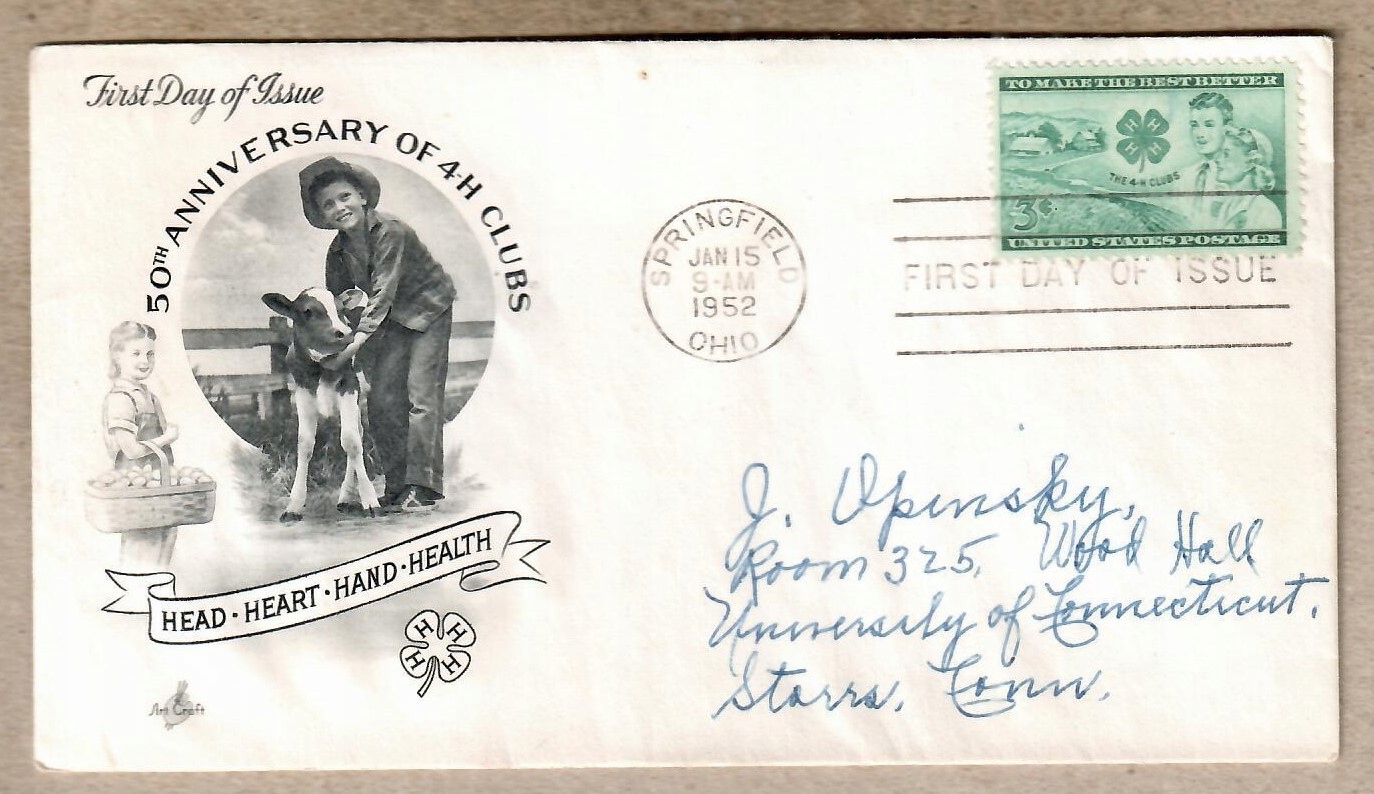 First Day of Issue
50TH ANNIVERSARY OF 4-H CLUBS
HEAD · HEART · HAND · HEALTH
H H
H H
Art Craft
SPRINGFIELD
JAN 15
9-AM
1952
OHIO
TO MAKE THE BEST BETTER
H H
H H
THE 4-H CLUBS
3¢
UNITED STATES POSTAGE
FIRST DAY OF ISSUE
J. Opinsky,
Room 325, Wood Hall
University of Connecticut.
Storrs, Conn.